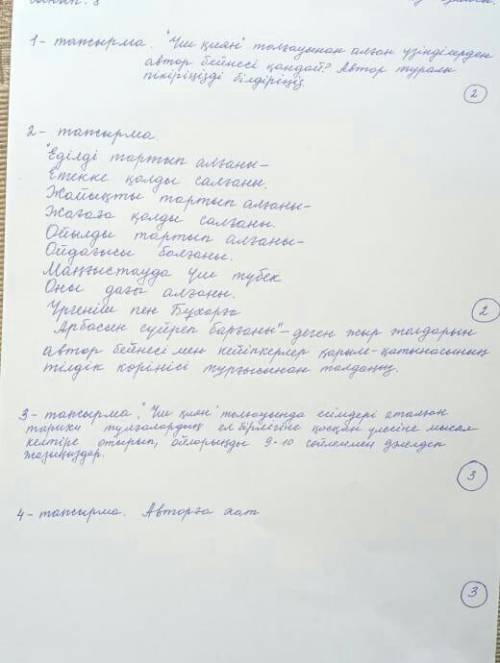 1-тапсырма. "Үш қиян" толғауынан алған үзінділерден
автор бейнесі қандай? Автор туралы
пікіріңізді білдіріңіз.
2
2-тапсырма
"Еділді тартып алғаны-
Етекке қолды салғаны.
Жайықты тартып алғаны-
Жағаға қолды салғаны.
Ойылды тартып алғаны-
Ойдағысы болғаны.
Маңғыстауда үш түбек
Оны дағы алғаны.
Үргеніш пен Бұхарға
Арбасын сүйреп барғаны"-деген жыр жолдарын
2
автор бейнесі мен кейіпкерлер қарым-қатынасының
тілдік көрінісі тұрғысынан талдаңыз.
3-тапсырма. "Үш қиян" толғауында есімдері аталған
тарихи тұлғалардың ел бірлігіне қосқан үлесіне мысал
келтіре отырып, ойларыңды 9-10 сөйлеммен дәлелдеп
жазыңыздар.
3
4-тапсырма. Авторға хат
3